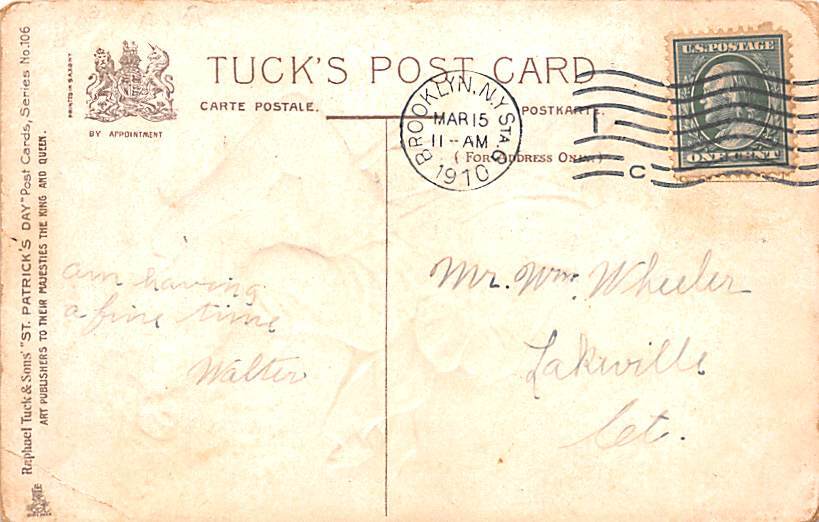 TUCK'S POST CARD
CARTE POSTALE.
POSTKARTE.
(FOR ADDRESS ONLY.)
BY APPOINTMENT
PRINTED IN SAXONY
Raphael Tuck & Sons' "ST. PATRICK'S DAY" Post Cards, Series No. 106
ART PUBLISHERS TO THEIR MAJESTIES THE KING AND QUEEN.
BROOKLYN, N.Y. STA. G
MAR 15
11-AM
1910
C
U.S. POSTAGE
ONE CENT
am having
a fine time
Walter
Mr. Wm. Wheeler
Lakeville
Ct.